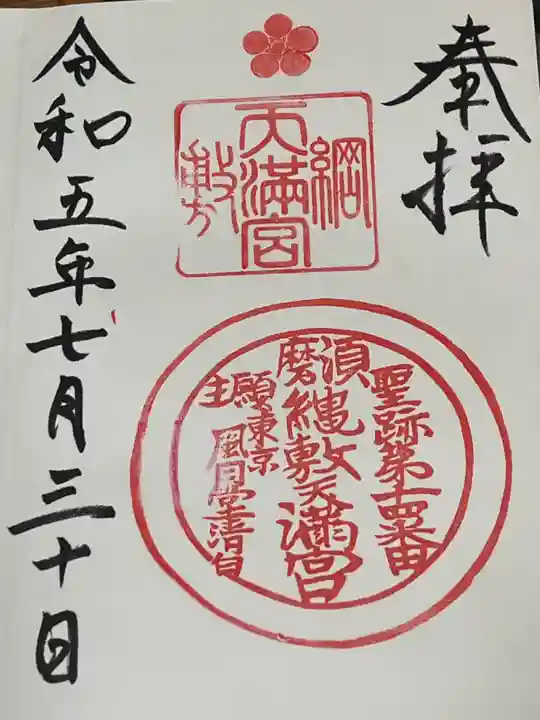 奉拝
綱
天満宮
敷
聖跡第十一番
須磨縄敷天満宮
願主
東京
風月堂清白
令和五年七月三十日